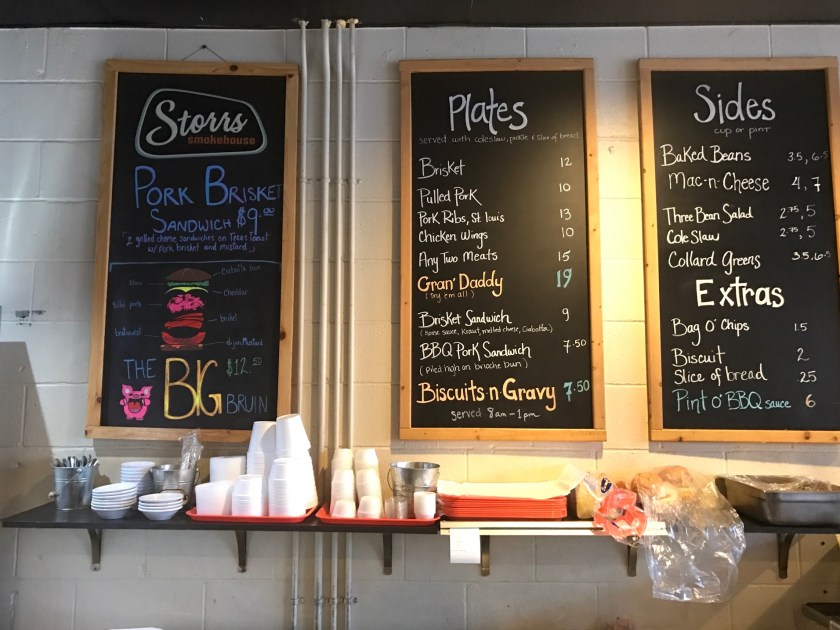 Storrs
smokehouse
PORK BRISKET
SANDWICH $9.00
2 grilled cheese sandwiches on Texas Toast
w/ Pork brisket and mustard
Ciabatta bun
Slaw
Cheddar
pulled pork
brisket
bratwurst
dijon Mustard
THE BIG BRUIN $12.50
Plates
served with coleslaw, pickle & slice of bread
Brisket 12
Pulled Pork 10
Pork Ribs, St. louis 13
Chicken Wings 10
Any Two Meats 15
Gran' Daddy 19
(Try 'em all)
Brisket Sandwich 9
(horse sauce, Kraut, melted cheese, Ciabatta)
BBQ Pork Sandwich 7.50
(Piled high on brioche bun)
Biscuits n Gravy 7.50
served 8am-1pm
Sides
cup or pint
Baked Beans 3.5, 6.5
Mac-n-Cheese 4, 7
Three Bean Salad 2.75, 5
Cole Slaw 2.75, 5
Collard Greens 3.5, 6.5
Extras
Bag O' Chips 1.5
Biscuit 2
Slice of bread .25
Pint O' BBQ sauce 6